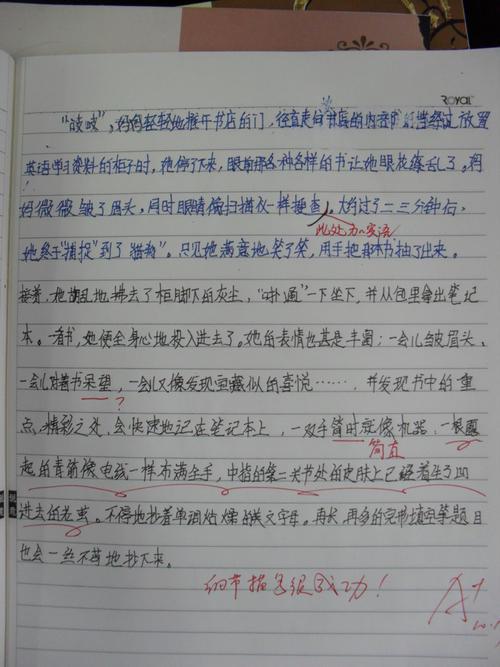 ROYAL
“吱吱”，妈妈轻轻地推开书店的门，径直走向书店的内部。当经过放置
英语学习资料的柜子时，她停了下来，眼前那各种各样的书让她眼花缭乱了。妈
妈微微皱了眉头，同时眼睛像扫描仪一样搜查。大约过了二三分钟后，
此处加心里话
她终于“捕捉”到了“猎物”。只见她满意地笑了笑，用手把那本书抽了出来。
接着，她粗乱地拂去了柜脚下的灰尘，“扑通”一下坐下，并从包里拿出笔记
本。一看书，她便全身心地投入进去了。她的表情也甚是丰富：一会儿皱眉头、
一会儿对着书呆望，一会儿又像发现宝藏似的喜悦……，并发现书中的重
?
点、精彩之处，会快速地记在笔记本上，一双手暂时变像机器，一根根
简直
起的青筋像电线一样布满全手，中指的第二关节处的皮肤上已经着生了凹
进去的老茧。不停地抄着单调枯燥的英文字母。再长再多的完形填空等题目
也会一丝不苟地抄下来。
细节描写很成功！
A+